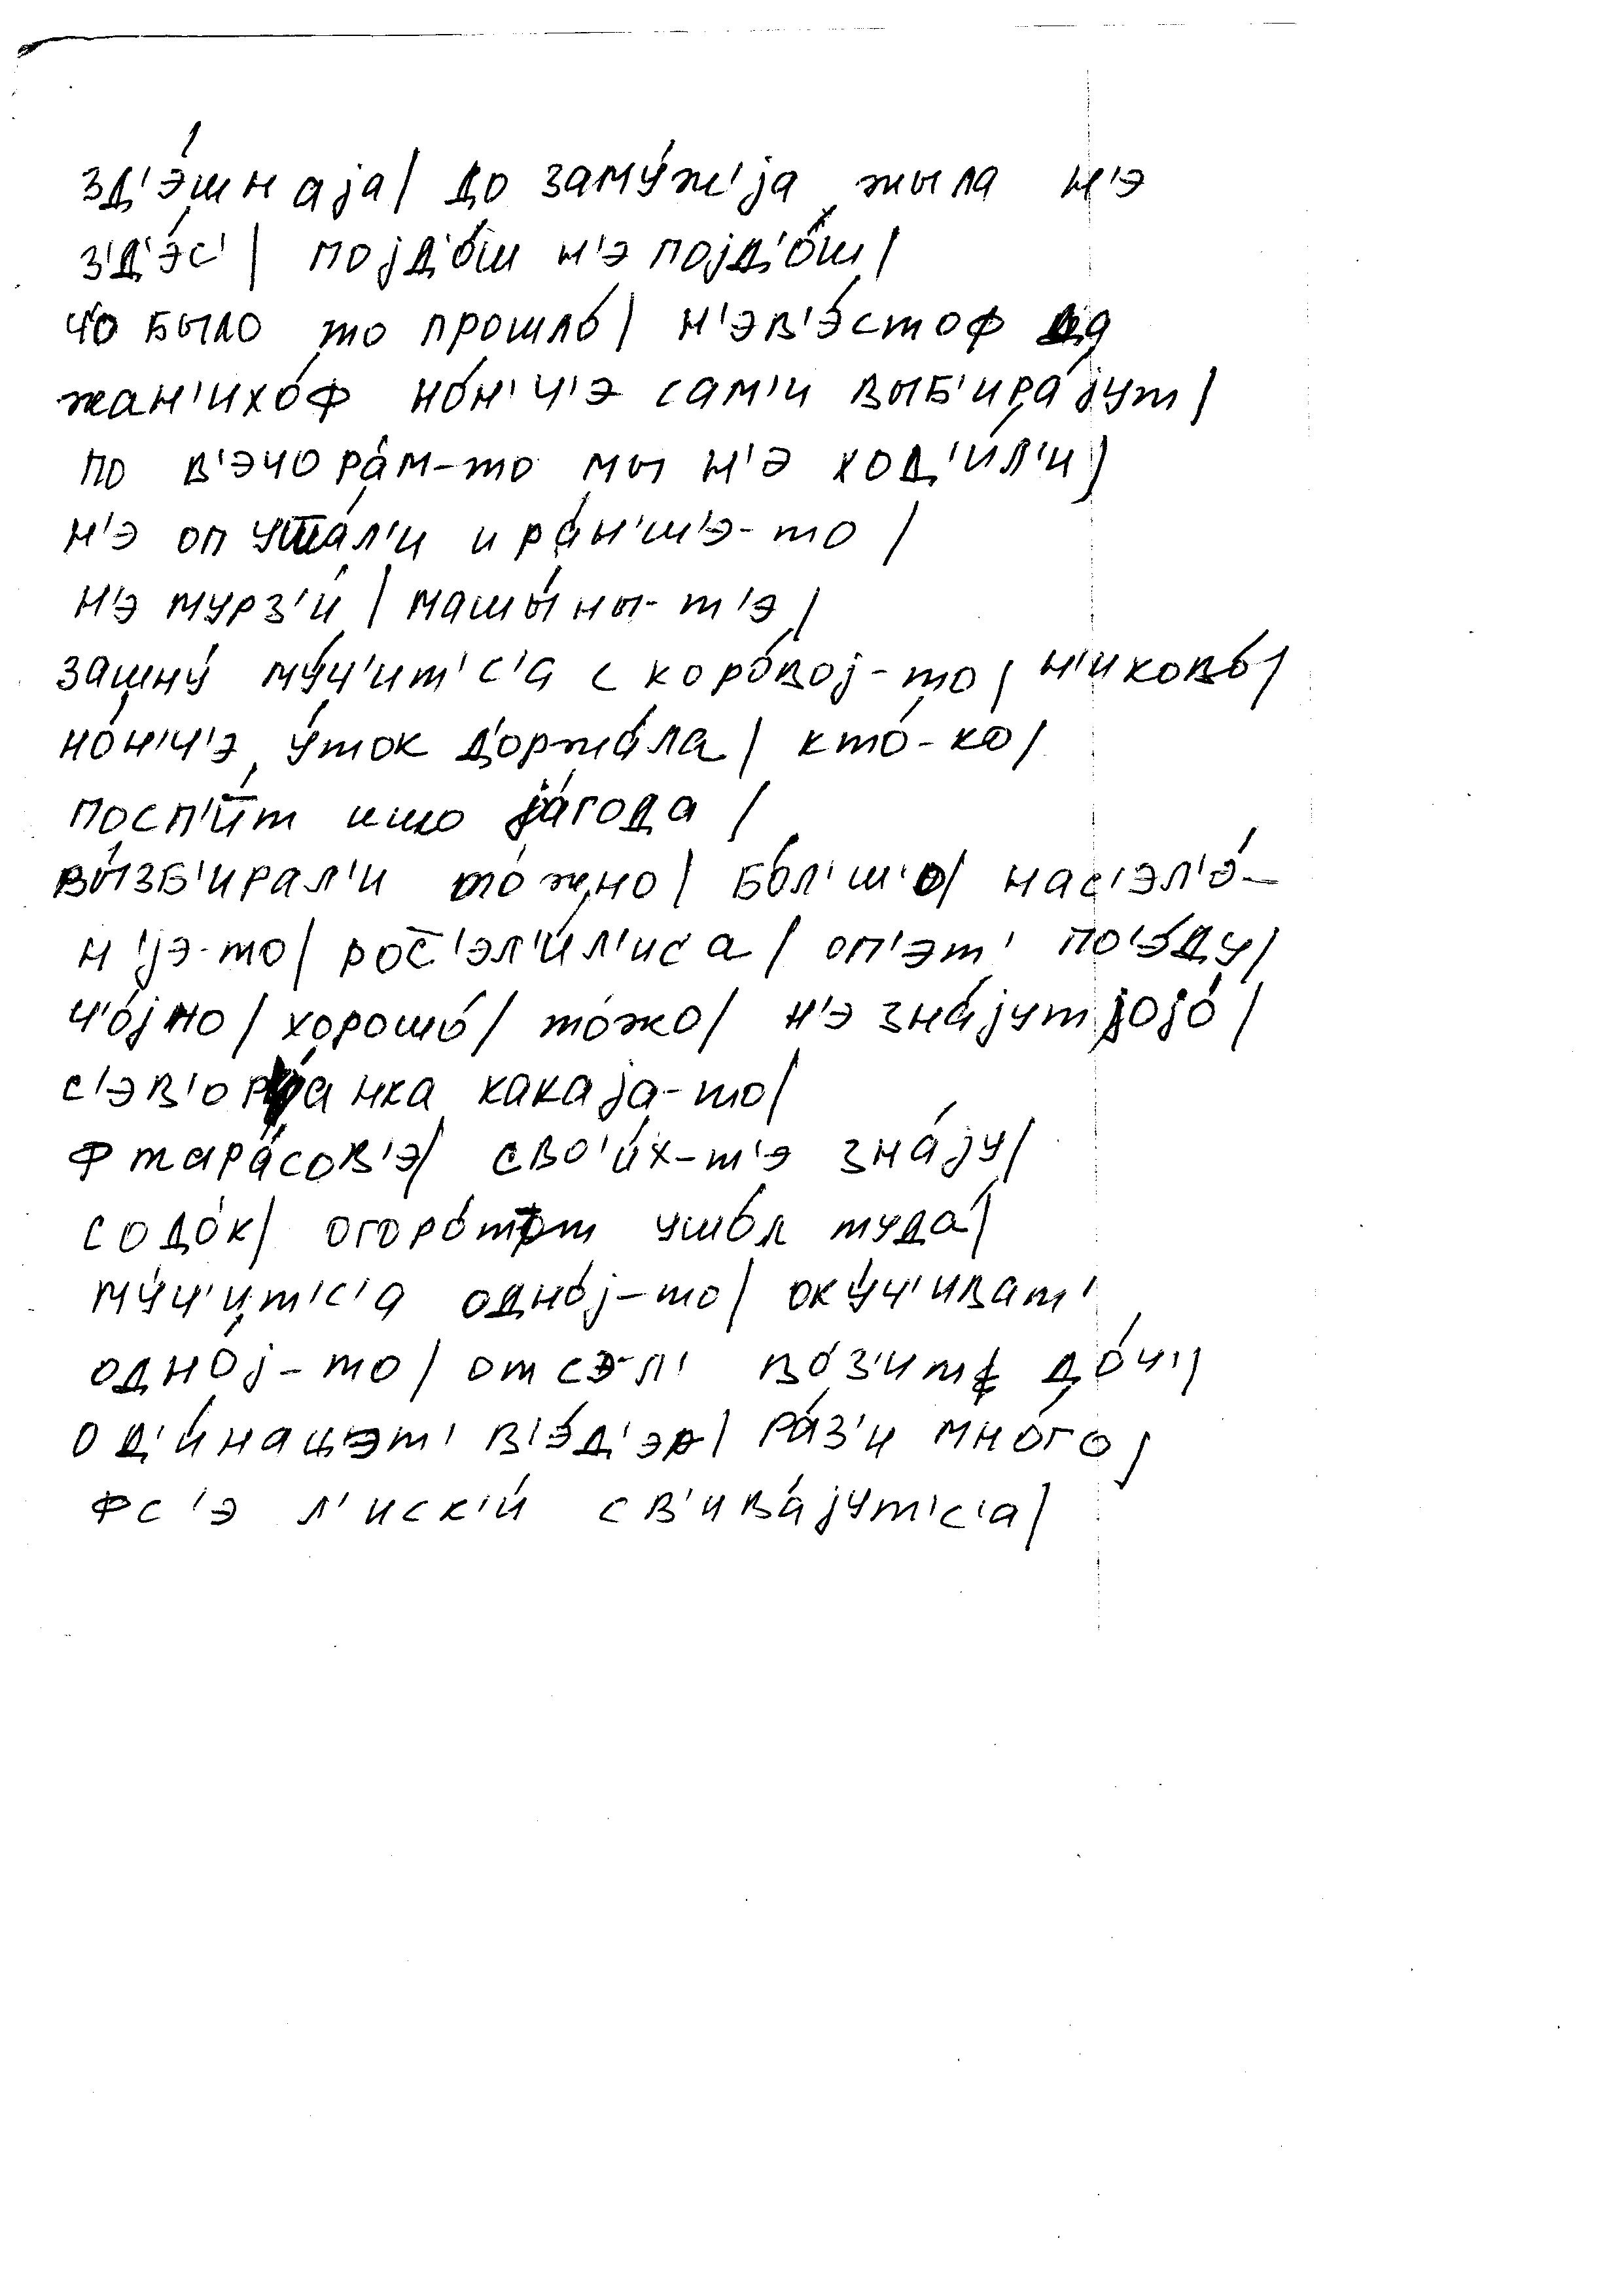 зд'э́шнаjа| до заму́ж'jа жыла н'э
з'д'э́с'| поjд'о́ш н'э поjд'о́ш|
чо было то прошло́| н'эв'э́стоф да
жан'ихо́ф но́н'ч'э сам'и выб'ира́jут|
по в'эчора́м-то мы н'э ход'и́л'и|
н'э опуш̅а́л'и и ра́н'ш'э-то|
н'э мурз'и́| машы́ны-т'э|
зашну́ му́ч'ит'с'а с коро́воj-то| н'иково́|
но́н'ч'э у́ток д'оржа́ла| кто́-ко|
посп'и́т ишо jа́года|
вы́зб'ирал'и то́жно| бо́л'ш'о| нас'эл'э́-
н'jэ-то| рос̅'эл'и́л'иса| оп'эт' по'э́ду|
ч'о́jно| хорошо́| то́жо| н'э зна́jут jоjо́|
с'эв'ора́нка какаjа-то|
ф тара́сов'э| сво'и́х-т'э зна́jу|
содо́к| огоро́т от ушо́л туда́|
му́ч'ит'с'а одно́j-то| оку́ч'иват'
одно́j-то| отсэл' во́з'ит до́ч'|
од'и́нацэт' в'э́д'эр| ра́з'и мно́го|
фс'э л'иск'и́ св'ива́jут'с'а|